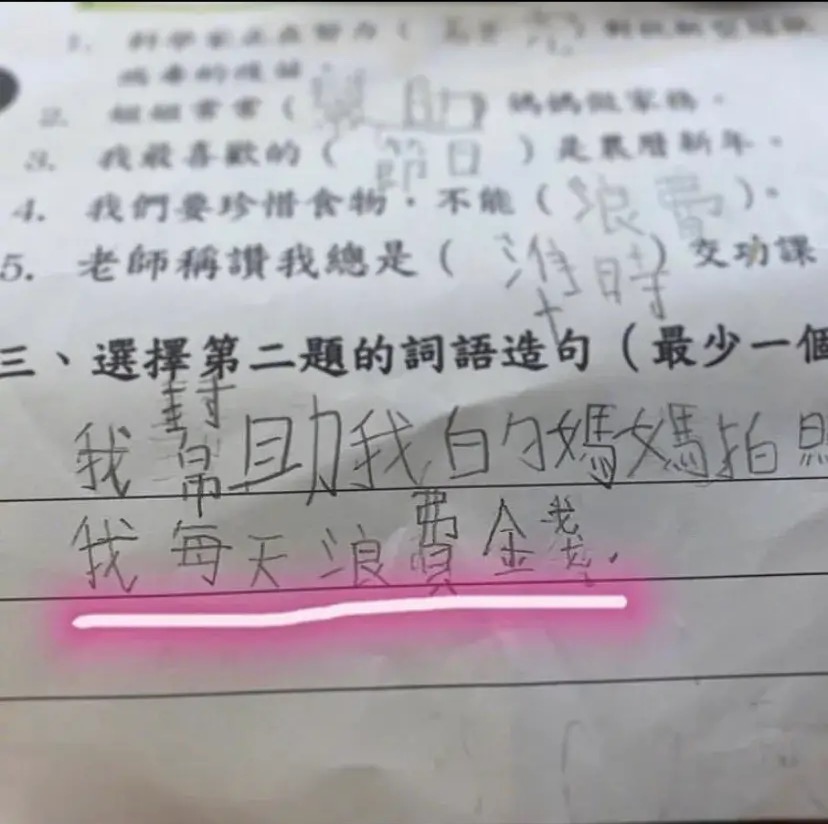 1. 科學家正在努力（）對抗新型冠狀
病毒的疫苗。
2. 姐姐常常（幫助）媽媽做家務。
3. 我最喜歡的（節日）是農曆新年。
4. 我們要珍惜食物，不能（浪費）。
5. 老師稱讚我總是（準時）交功課
三、選擇第二題的詞語造句（最少一個
我幫助我的媽媽拍照
我每天浪費金錢。